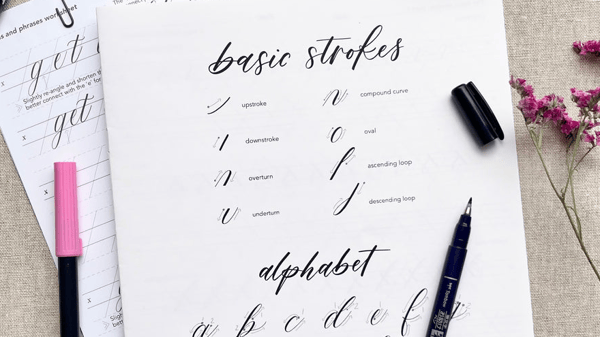 s and phrases worksheet
get
Slightly re-angle and shorten th
better connect with the 'e' for
get
x
x
x
basic strokes
upstroke
compound curve
downstroke
oval
overturn
ascending loop
underturn
descending loop
alphabet
a b c d e f